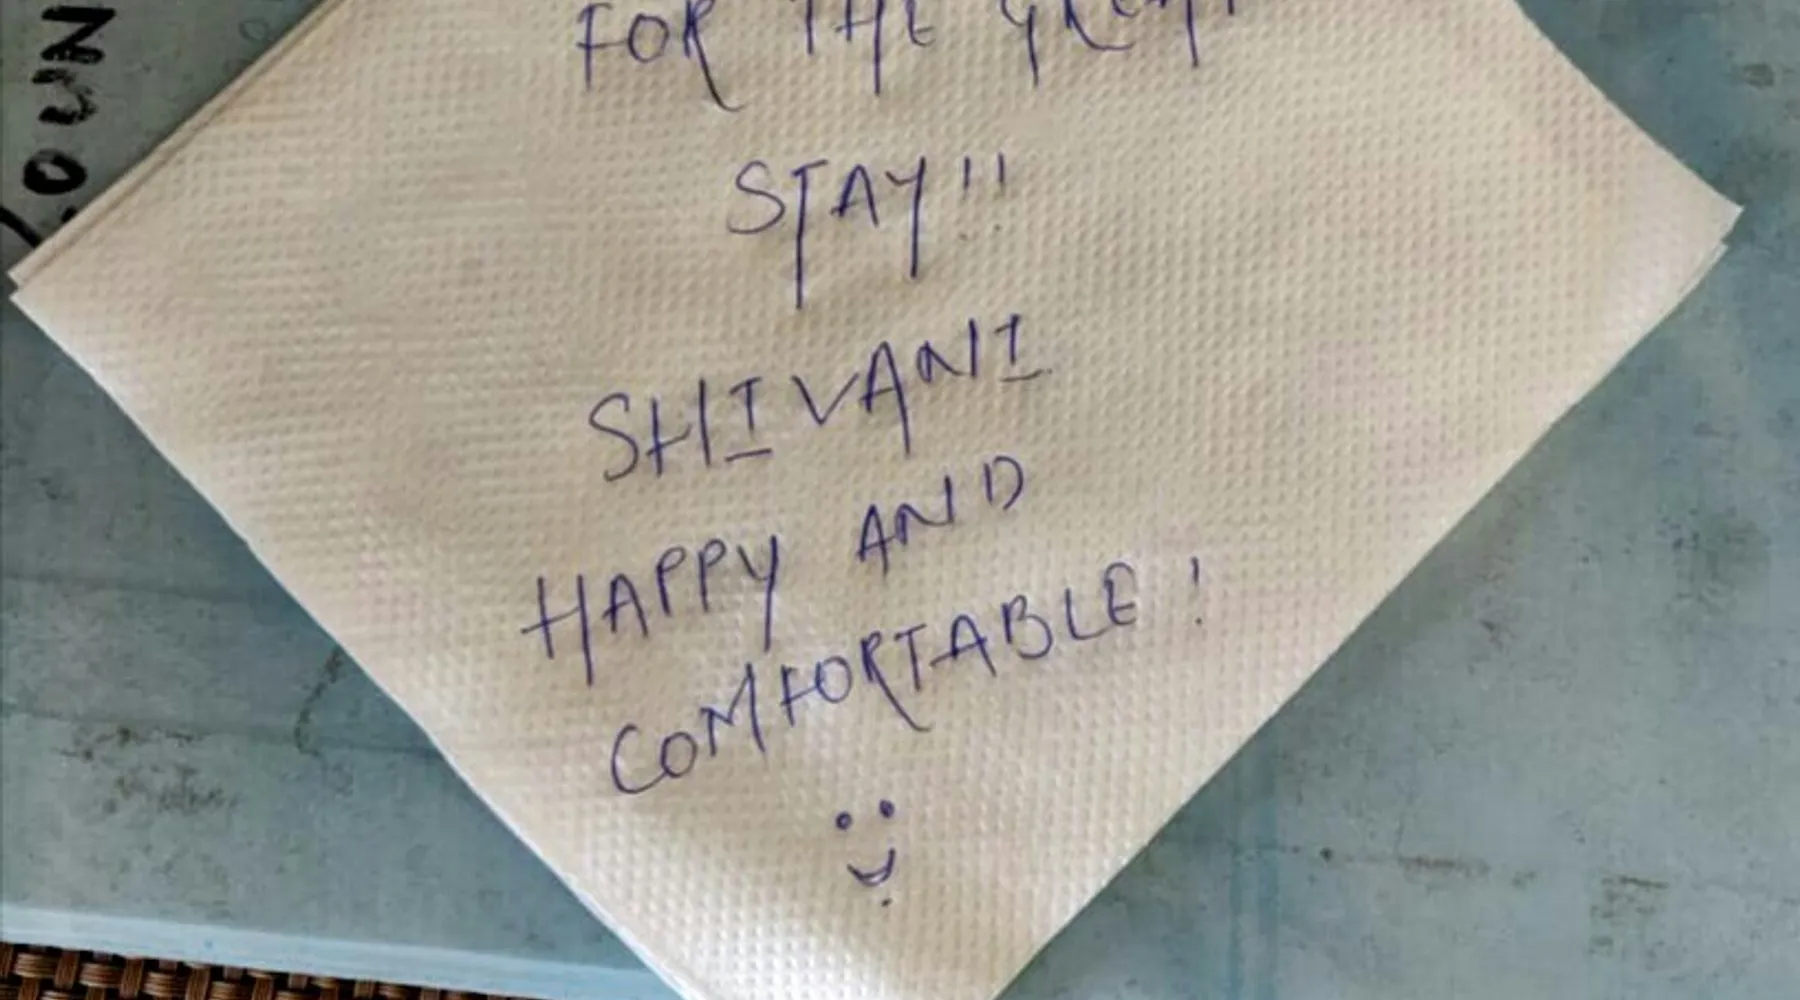 FOR THE GREAT
STAY!!
SHIVANI
HAPPY AND
COMFORTABLE!